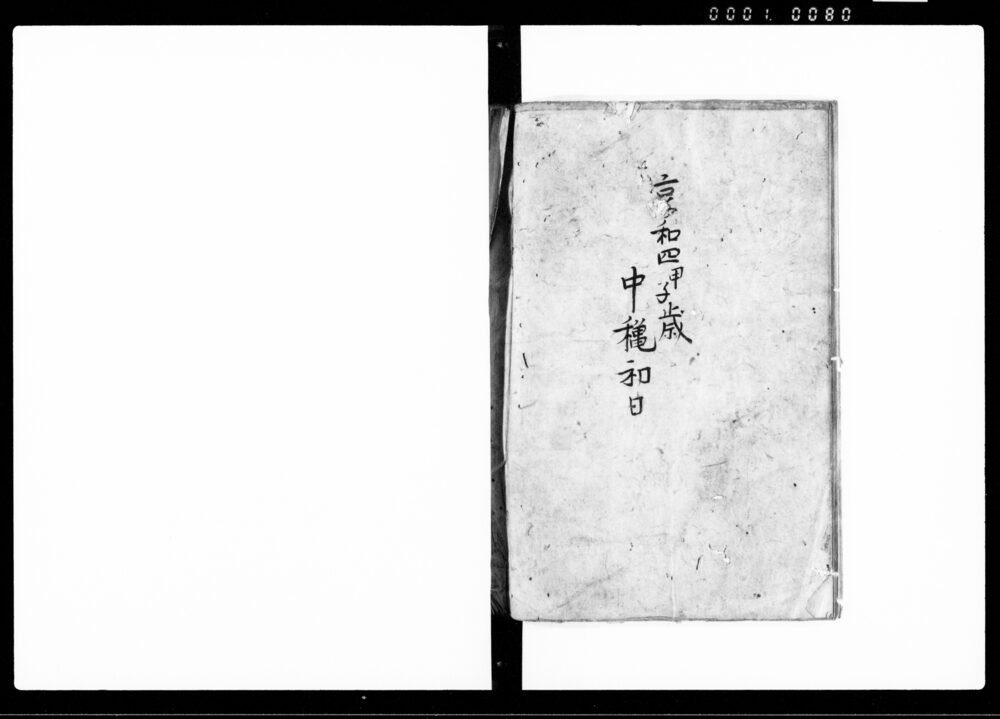 0001. 0080
享和四甲子歳
中穐和日